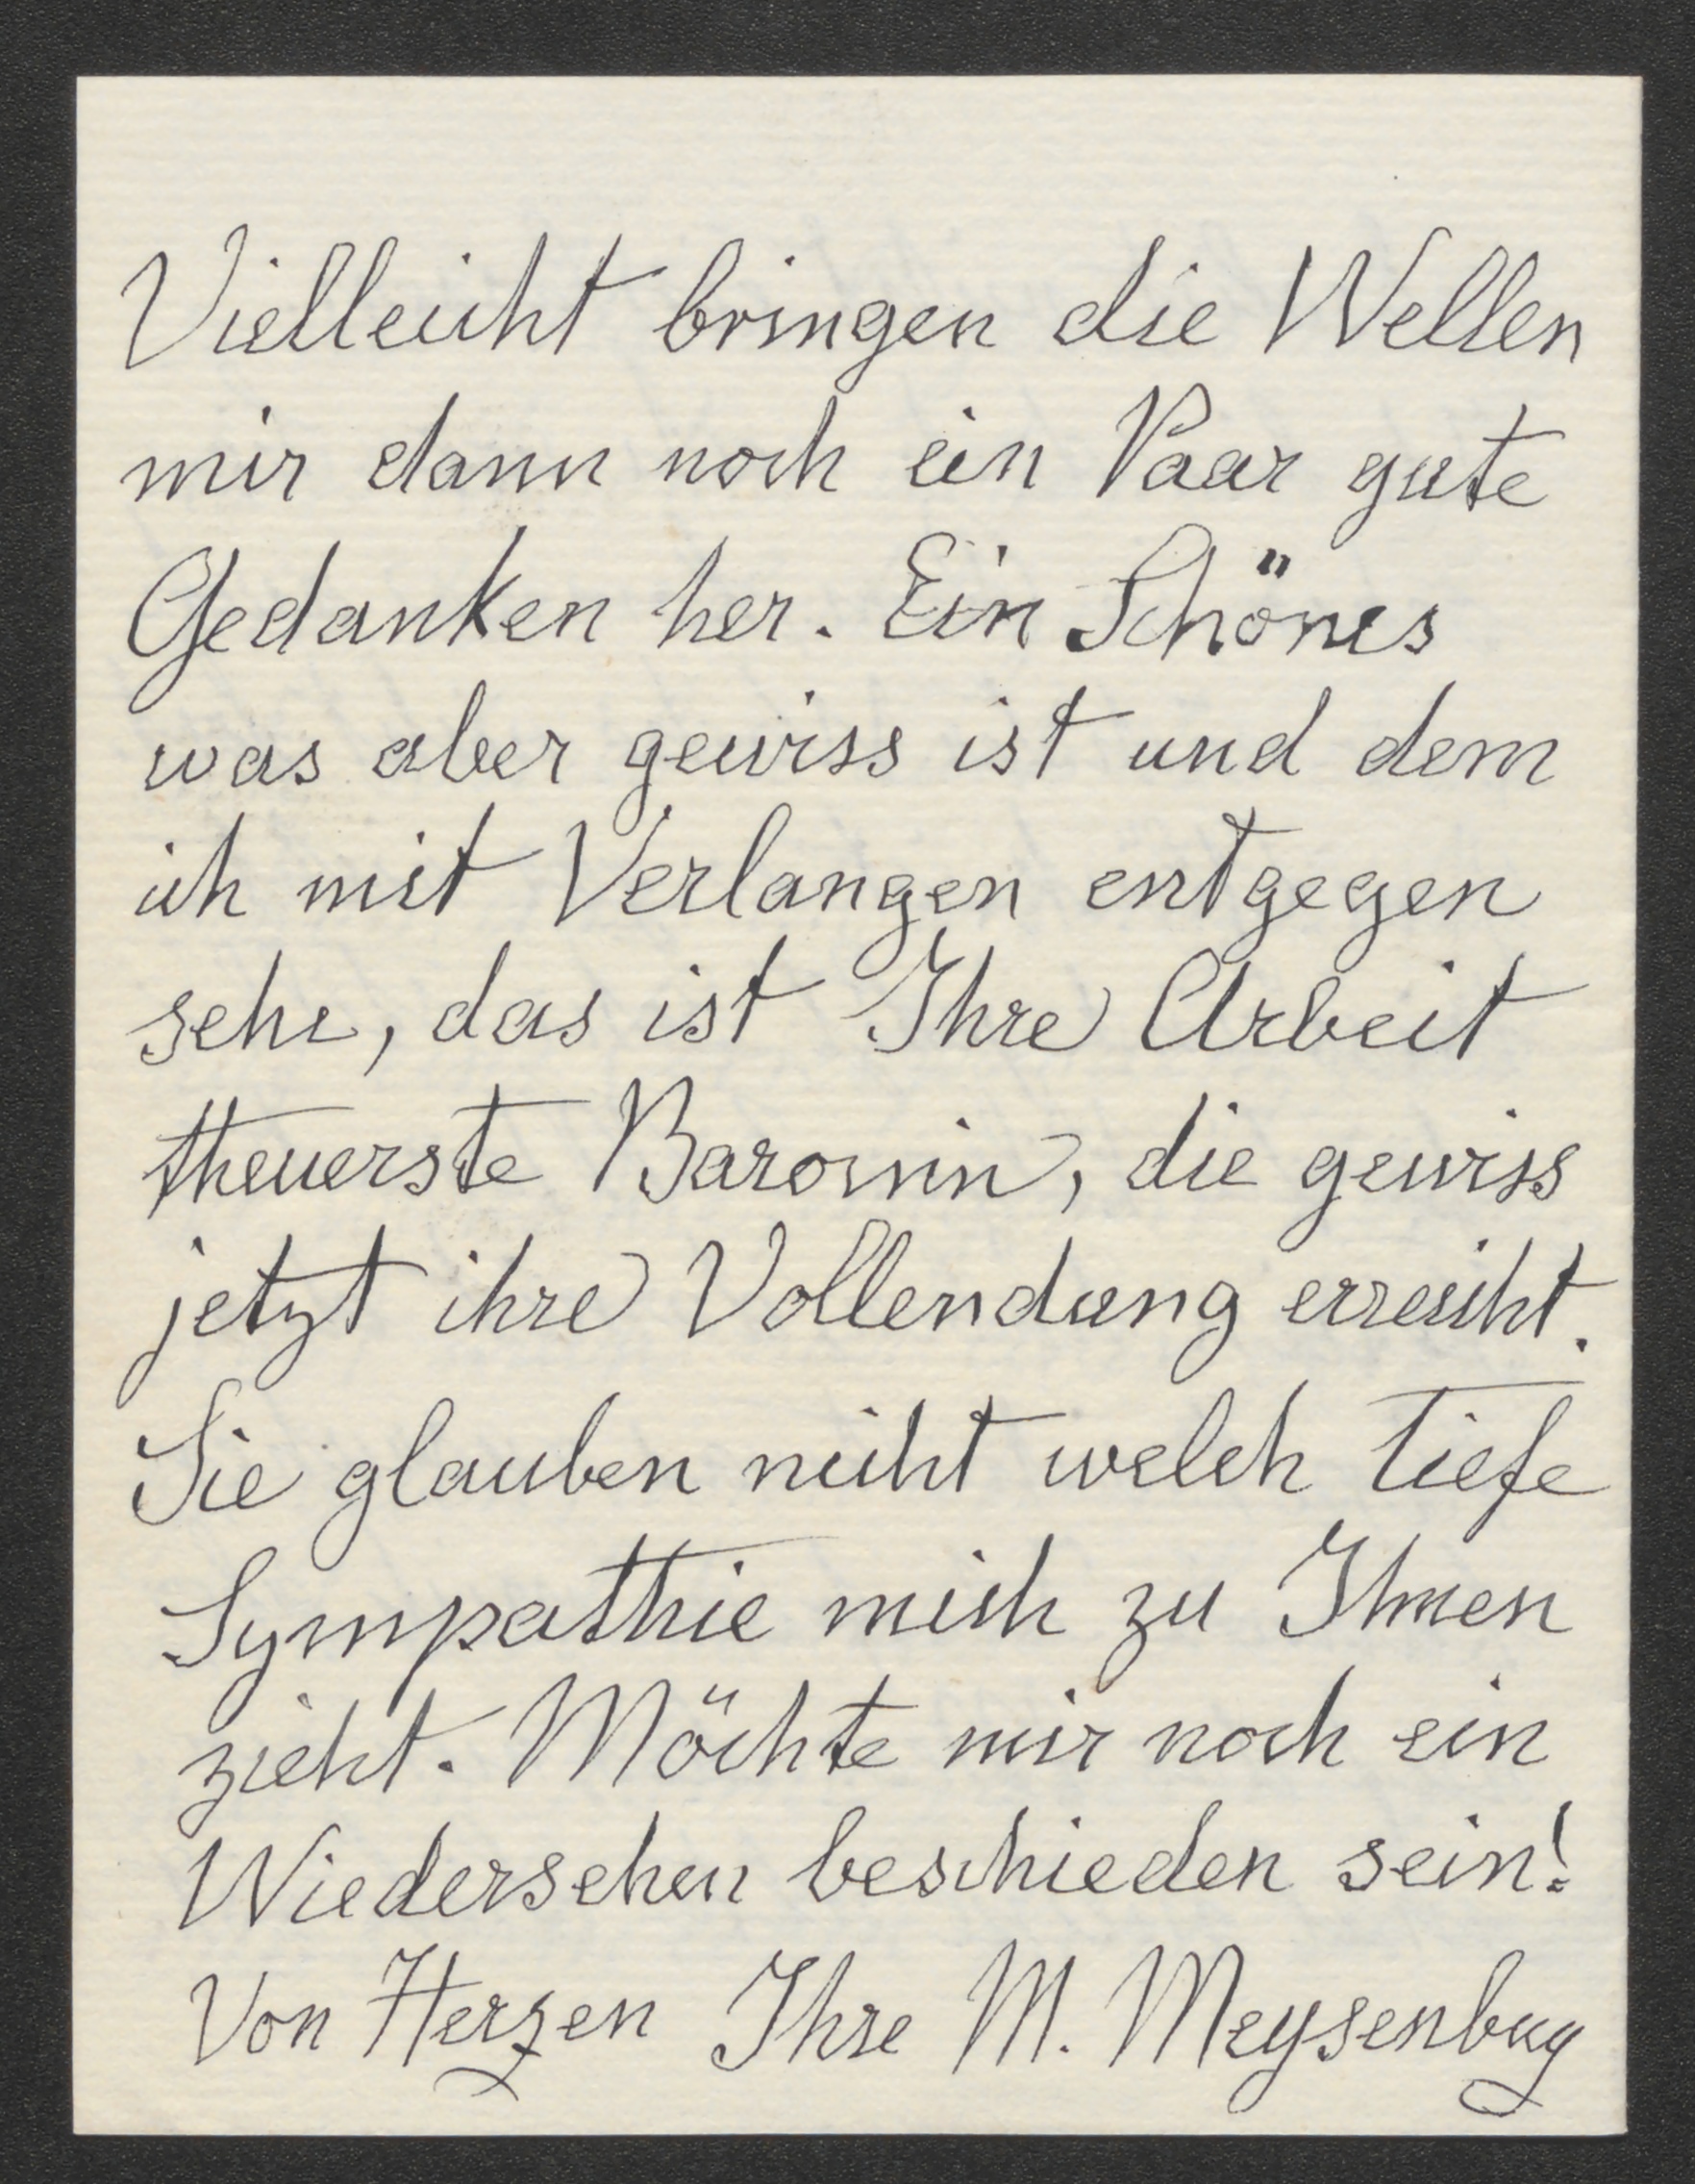 Vielleicht bringen die Wellen
mir dann noch ein Paar gute
Gedanken her. Ein Schönes
was aber gewiss ist und dem
ich mit Verlangen entgegen
sehe, das ist Ihre Arbeit
theuerste Baronin, die gewiss
jetzt ihre Vollendung erreicht.
Sie glauben nicht welch tiefe
Sympathie mich zu Ihnen
zieht. Möchte mir noch ein
Wiedersehen beschieden sein!
Von Herzen Ihre M. Meysenbug